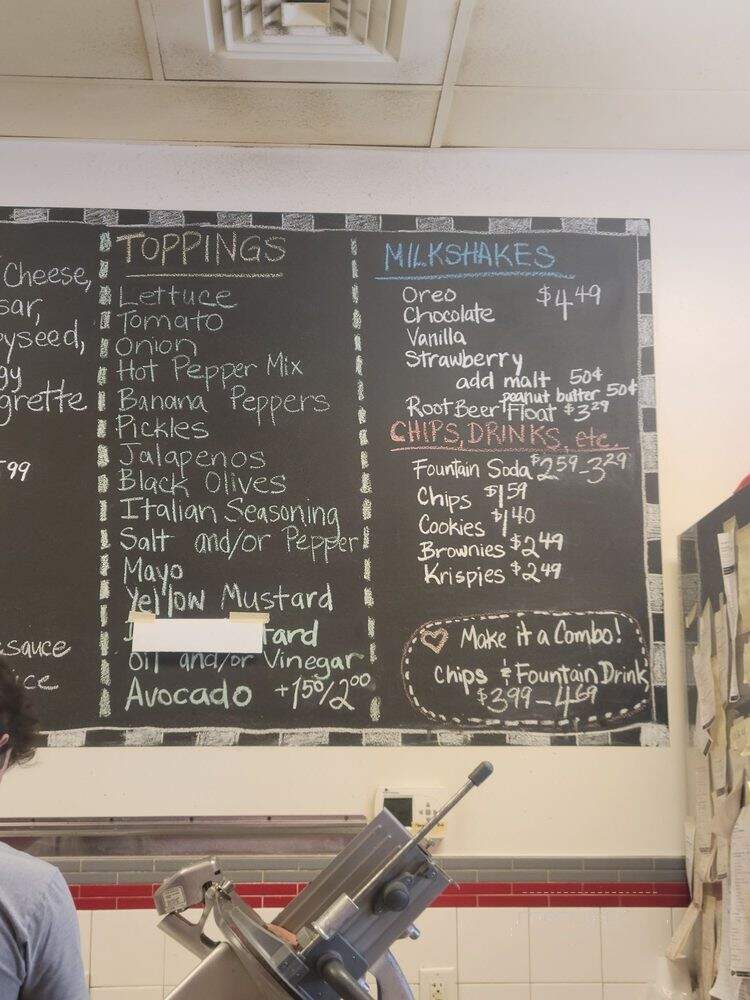 Cheese,
sar,
yseed,
gy
grette
99
sauce
ice
TOPPINGS
Lettuce
Tomato
Onion
Hot Pepper Mix
Banana Peppers
Pickles
Jalapenos
Black Olives
Italian Seasoning
Salt and/or Pepper
Mayo
Yellow Mustard
tard
Oil and/or Vinegar
Avocado +1⁵⁰/2⁰⁰
MILKSHAKES
Oreo $4⁴⁹
Chocolate
Vanilla
Strawberry
add malt 50¢
peanut butter 50¢
Root Beer Float $3²⁹
CHIPS, DRINKS, etc.
Fountain Soda $2⁵⁹-3²⁹
Chips $1⁵⁹
Cookies $1⁴⁰
Brownies $2⁴⁹
Krispies $2⁴⁹
Make it a Combo!
Chips & Fountain Drink
$3⁹⁹-4⁶⁹